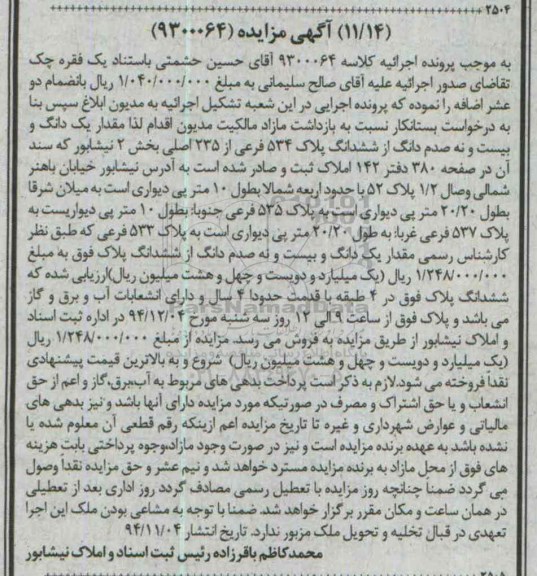 ۲۵۰۴
(۱۱/۱۴) آگهی مزایده (۹۳۰۰۰۶۴)
به موجب پرونده اجرائیه کلاسه ۹۳۰۰۰۶۴ آقای حسین حشمتی باستناد یک فقره چک
تقاضای صدور اجرائیه علیه آقای صالح سلیمانی به مبلغ ۱/۰۴۰/۰۰۰/۰۰۰ ریال بانضمام دو
عشر اضافه را نموده که پرونده اجرایی در این شعبه تشکیل اجرائیه به مدیون ابلاغ سپس بنا
به درخواست بستانکار نسبت به بازداشت مازاد مالکیت مدیون اقدام لذا مقدار یک دانگ و
بیست و نه صدم دانگ از ششدانگ پلاک ۵۳۴ فرعی از ۲۳۵ اصلی بخش ۲ نیشابور که سند
آن در صفحه ۳۸۰ دفتر ۱۴۲ املاک ثبت و صادر شده است به آدرس نیشابور خیابان باهنر
شمالی وصال ۱/۲ پلاک ۵۲ با حدود اربعه شمالا بطول ۱۰ متر پی دیواری است به میلان شرقا
بطول ۲۰/۲۰ متر پی دیواری است به پلاک ۵۳۵ فرعی جنوبا: بطول ۱۰ متر پی دیواریست به
پلاک ۵۳۷ فرعی غربا: به طول ۲۰/۲۰ متر پی دیواری است به پلاک ۵۳۳ فرعی که طبق نظر
کارشناس رسمی مقدار یک دانگ و بیست و نه صدم دانگ از ششدانگ پلاک فوق به مبلغ
۱/۲۴۸/۰۰۰/۰۰۰ ریال (یک میلیارد و دویست و چهل و هشت میلیون ریال)ارزیابی شده که
ششدانگ پلاک فوق در ۴ طبقه با قدمت حدودا ۴ سال و دارای انشعابات آب و برق و گاز
می باشد و پلاک فوق از ساعت ۹ الی ۱۲ روز سه شنبه مورخ ۹۴/۱۲/۰۴ در اداره ثبت اسناد
و املاک نیشابور از طریق مزایده به فروش می رسد. مزایده از مبلغ ۱/۲۴۸/۰۰۰/۰۰۰ ریال
(یک میلیارد و دویست و چهل و هشت میلیون ریال) شروع و به بالاترین قیمت پیشنهادی
نقداً فروخته می شود.لازم به ذکر است پرداخت بدهی های مربوط به آب،برق،گاز و اعم از حق
انشعاب و یا حق اشتراک و مصرف در صورتیکه مورد مزایده دارای آنها باشد و نیز بدهی های
مالیاتی و عوارض شهرداری و غیره تا تاریخ مزایده اعم ازینکه رقم قطعی آن معلوم شده یا
نشده باشد به عهده برنده مزایده است و نیز در صورت وجود مازاد،وجوه پرداختی بابت هزینه
های فوق از محل مازاد به برنده مزایده مسترد خواهد شد و نیم عشر و حق مزایده نقداً وصول
می گردد ضمناً چنانچه روز مزایده با تعطیل رسمی مصادف گردد روز اداری بعد از تعطیلی
در همان ساعت و مکان مقرر برگزار خواهد شد. ضمنا با توجه به مشاعی بودن ملک این اجرا
تعهدی در قبال تخلیه و تحویل ملک مزبور ندارد. تاریخ انتشار ۹۴/۱۱/۰۴
محمدکاظم باقرزاده رئیس ثبت اسناد و املاک نیشابور